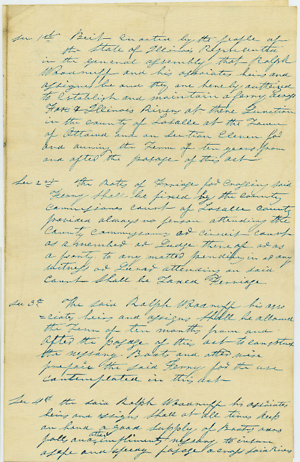 Sec 1st Be it Enacted by the people of
the State of Illinois Represented
in the general assembly that Ralph
Woodruff and his associates heirs and
assigns be and they are hereby authered
to Establish and maintain a ferry across
Fox & Illinois Rivers at there Junction
in the county of Lasalle at the Town
of Ottawa on section Eleven for
and during the Term of ten years from
and after the passage of this act
Sec 2nd The Rates of Ferriage for Crossing said
Ferry shall be fixed by the County
Commissioners Court of Lasalle County
provided always no person attending the
County Commissioners or circuit court
as a member or Judge thereof or as
a party to any matter pending or as any
witness or Juror attending on said
Court shall be Taxed Ferriage
Sec 3d The said Ralph Woodruff his asso
ciates heirs and assigns shall be allowed
the Term of ten months from and
after the passage of this act to construct
the necessary Boats and otherwise
prepare the said Ferry for the use
Contemplated in this act
Sec 4th the said Ralph Woodruff his asociates
heirs and assigns shall at all times keep
on hand a good supply of Boats oars
and other implements necessary to insure
a safe and speedy passage across said Rivers